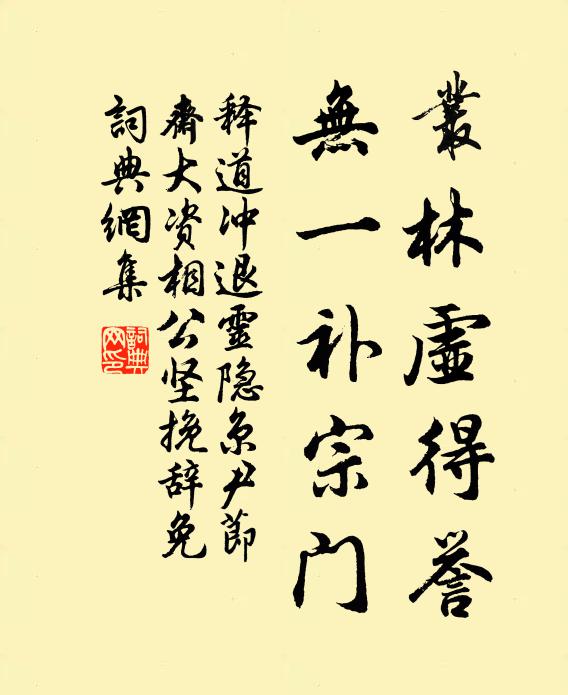 叢林虛得譽
無一补宗门
释道冲退靈隐京尹節
齋大资相公坚挽辞免
詞典網集
詞典网印